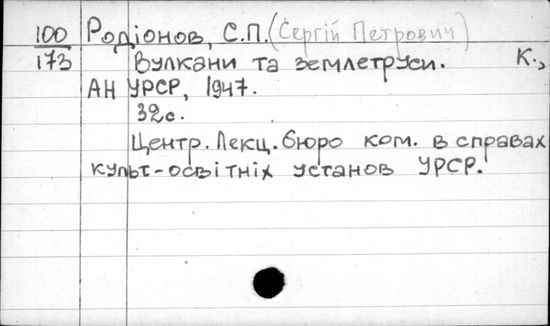 100 Родіонов, С.П. (Сергій Петрович)
173 Вулкани та землетруси. К.,
АН УРСР, 1947.
32с.
Центр. Лекц. бюро ком. в справах
культ-освітніх установ УРСР.